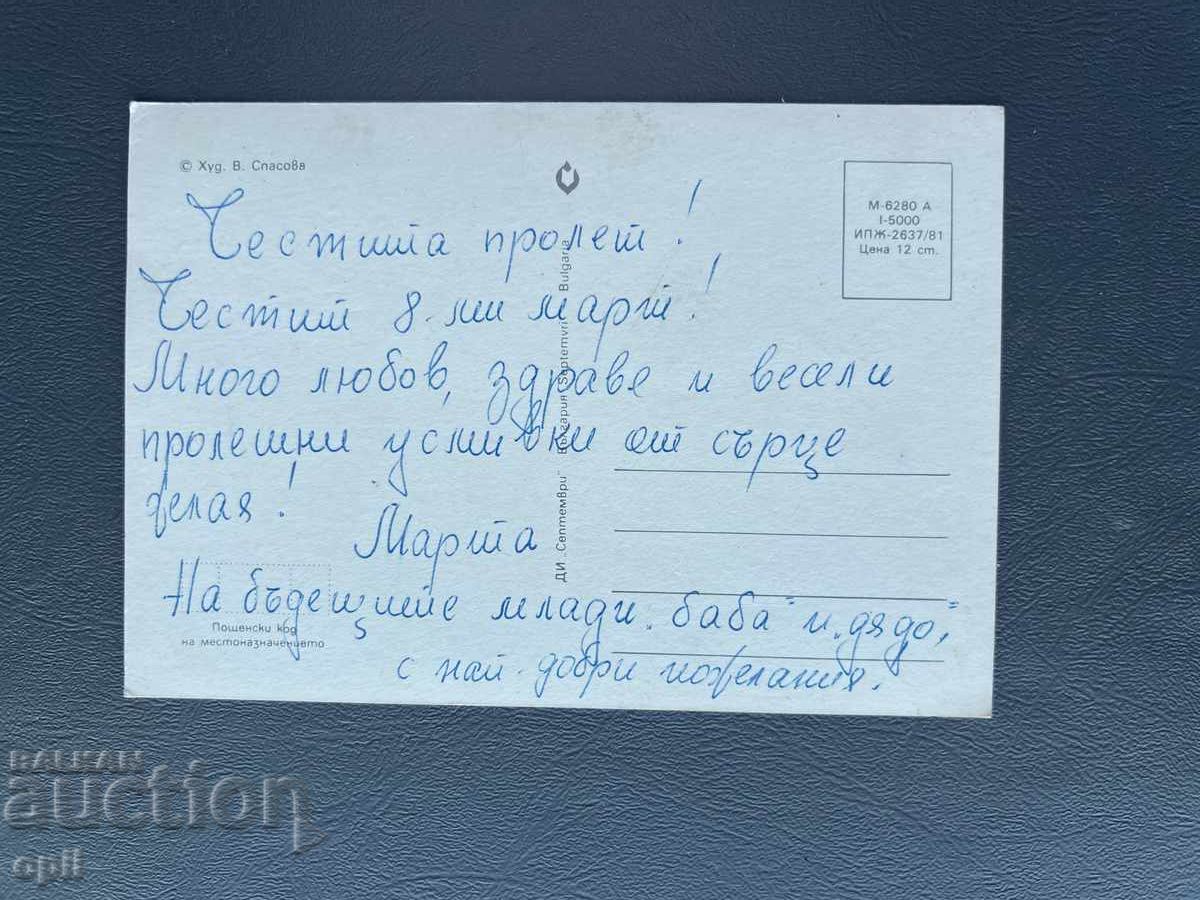 © Худ. В. Спасова
М-6280 А
I-5000
ИПЖ-2637/81
Цена 12 ст.
Честита пролет!
Честит 8.ми март!
Много любов, здраве и весели
пролетни усмивки от сърце
желая!
Марта
На бъдещите млади „баба" и „дядо",
с най-добри пожелания.
ДИ „Септември" България Septemvri Bulgaria
Пощенски код
на местоназначението
BALKAN
auction
opii